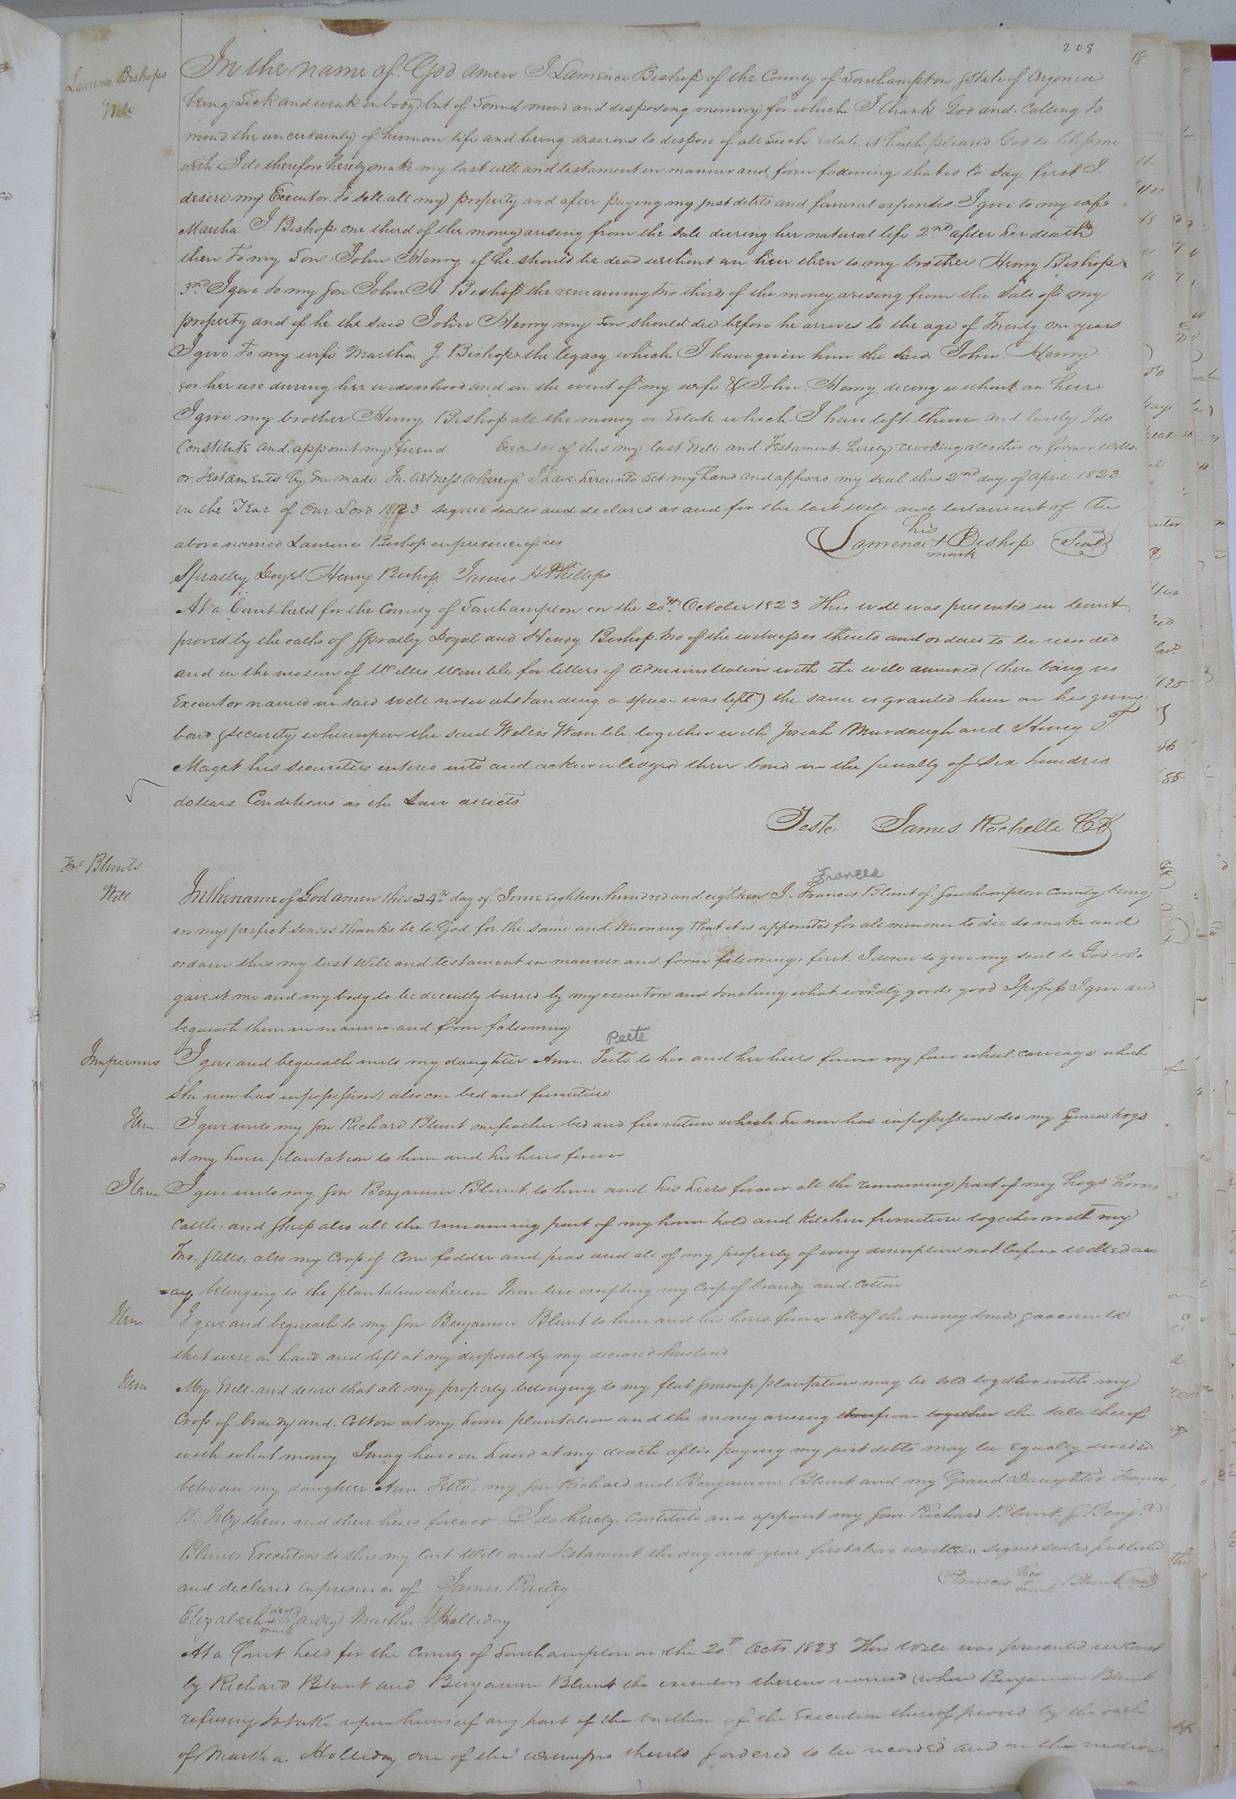 208
Lawrence Bishops
Will
In the name of God amen I Lawrence Bishop of the County of Southampton & State of Virginia
being Sick and weak in body but of Sound mind and disposing memory for which I thank God and Calling to
mind the uncertainty of human life and being desirous to dispose of all Such estate it hath pleased God to bless me
with I do therefore hereby make my last will and testament in manner and form following that is to say first I
desire my Executor to sell all my property and after paying my just debts and funeral expenses I give to my wife
Martha J Bishop one third of the money arising from the sale during her natural life 2nd after her death
then to my Son John Henry if he should be dead without an heir then to my brother Henry Bishop
3rd I give to my Son John H Bishop the remaining two thirds of the money arising from the Sale of my
property and if he the said John Henry my Son should die before he arrives to the age of Twenty one years
I give to my wife Martha J. Bishop the legacy which I have given him the said John Henry
for her use during her widowhood and in the event of my wife & John Henry dieing without an heir
I give my brother Henry Bishop all the money or Estate which I have left them and lastly I do
Constitute and appoint my friend Executor of this my last Will and Testament hereby revoking all other or former wills
or testaments by me made In witness whereof I have hereunto set my hand and affixed my seal this 2nd day of April 1823
in the Year of Our Lord 1823 signed sealed and declared as and for the last will and testament of the
above named Lawrence Bishop in presence of us
his
Lawrence + Bishop Seal
mark
Spratley Doyel Henry Bishop James H Phillips
At a Court held for the County of Southampton on the 20th October 1823 This will was presented in Court
proved by the oaths of Spratley Doyal and Henry Bishop two of the witnesses thereto and ordered to be recorded
and on the motion of Willis Womble for letters of administration with the will annexed (there being no
Executor named in said will notwithstanding a space was left) the same is granted him on his giving
bond & security whereupon the said Willis Womble together with Josiah Murdaugh and Henry
Maget his securities entered into and acknowledged their bond in the penalty of Six hundred
dollars Conditioned as the Law directs
Teste James Rochelle CC
Frs Blunts
Will
Frances
In the name of God amen this 24th day of June eighteen hundred and eighteen I Francis Blunt of Southampton County being
in my perfect senses thanks be to God for the same and knowing that it is appointed for all men once to die do make and
ordain this my last Will and testament in manner and form following, first I desire to give my soul to God who
gave it me and my body to be decently buried by my executors and touching what worldly goods good I possess I give and
bequeath them in manner and form following
Imprimus
Peete
I give and bequeath unto my daughter Ann Peete to her and her heirs forever my four wheel carriage which
she now has in possession, also one bed and furniture
Item
I give unto my Son Richard Blunt one feather bed and furniture which he now has in possession also my Guinea hogs
at my home plantation to him and his heirs forever
Item
I give unto my Son Benjamin Blunt to him and his heirs forever all the remaining part of my Hogs Horses
Cattle and Sheep also all the remaining part of my house hold and kitchen furniture together with my
two Stills, also my Crop of Corn fodder and peas and all of my property of every description not before willed aw
=ay, belonging to the plantation whereon I now live excepting my Crop of brandy and Cotton
Item
I give and bequeath to my Son Benjamin Blunt to him and his heirs forever all of the money bonds & accounts
that were on hand and left at my disposal by my deceased husband
Item
My Will and desire that all my property belonging to my flat Swamp plantation may be sold together with my
Crop of brandy and Cotton at my home plantation and the money arising from the sale thereof
with what money I may have on hand at my death after paying my just debts may be equally divided
between my daughter Ann Peete, my Son Richard and Benjamin Blunt and my Grand Daughter Frances
B. to them and their heirs forever I do hereby Constitute and appoint my Sons Richard Blunt & Benja
Blunt Executors to this my last Will and Testament the day and year first above written signed sealed published
and declared in presence of James Bailey
her
Francis + Blunt Seal
mark
Elizabeth her + mark Bailey Martha Holliday
At a Court held for the County of Southampton on the 20th Octo 1823 This Will was presented in Court
by Richard Blunt and Benjamin Blunt the executors therein named (when Benjamin Blunt
refusing to take upon himself any part of the burthen of the Execution thereof proved by the oath
of Martha Holliday one of the witnesses thereto & ordered to be recorded and on the motion